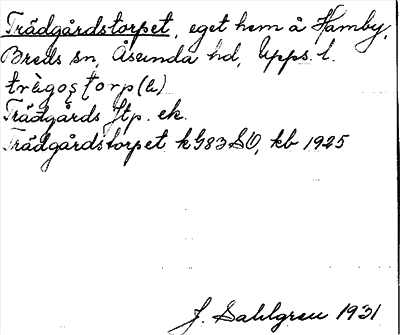 Trädgårdstorpet, eget hem å Hamby,
Breds sn, Åsunda hd, Upps. l.
trägoştorp(ə)
Trädgårds ftp. ek.
Trädgårdstorpet k 983 SO, kb 1925
J. Sahlgren 1931